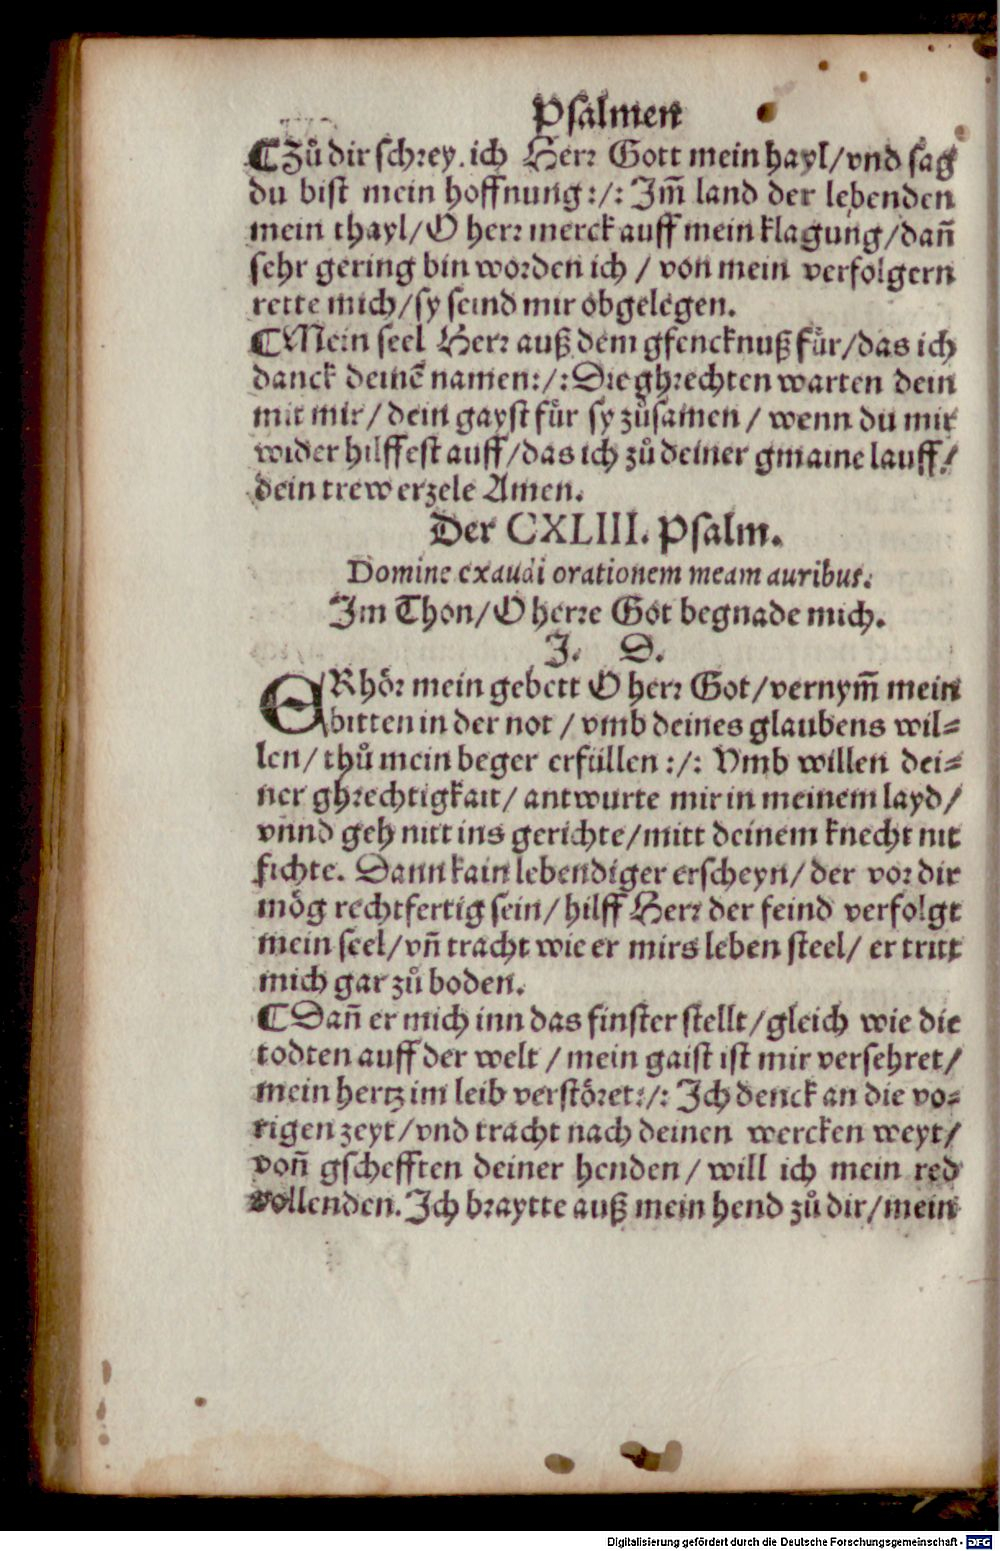 Psalmen
⸿Zů dir schrey ich Herr Gott mein hayl/vnd sag
du bist mein hoffnung:/: Im̃ land der lebenden
mein thayl/O herr merck auff mein klagung/dañ
sehr gering bin worden ich / von mein verfolgern
rette mich/sy seind mir obgelegen.
⸿Mein seel Herr auß dem gfencknuß für/das ich
danck deinẽ namen:/: Die ghrechten warten dein
mit mir/ dein gayst für sy zůsamen / wenn du mir
wider hilffest auff/das ich zů deiner gmaine lauff/
dein trew erzele Amen.
Der CXLIII. Psalm.
Domine exaudi orationem meam auribus.
Im Thon/O herre Got begnade mich.
J. D.
ERhör mein gebett O herr Got/vernym̃ mein
bitten in der not / vmb deines glaubens wil⸗
len/ thů mein beger erfüllen :/: Vmb willen dei⸗
ner ghrechtigkait/ antwurte mir in meinem layd/
vnnd geh nitt ins gerichte/mitt deinem knecht nit
fichte. Dann kain lebendiger erscheyn/ der vor dir
mög rechtfertig sein/ hilff Herr der feind verfolgt
mein seel/vñ tracht wie er mirs leben steel/ er tritt
mich gar zů boden.
⸿Dañ er mich inn das finster stellt/gleich wie die
todten auff der welt / mein gaist ist mir versehret/
mein hertz im leib verstöret:/: Ich denck an die vo⸗
rigen zeyt/vnd tracht nach deinen wercken weyt/
voñ gschefften deiner henden/ will ich mein red
vollenden. Ich braytte auß mein hend zů dir/mein
Digitalisierung gefördert durch die Deutsche Forschungsgemeinschaft - DFG